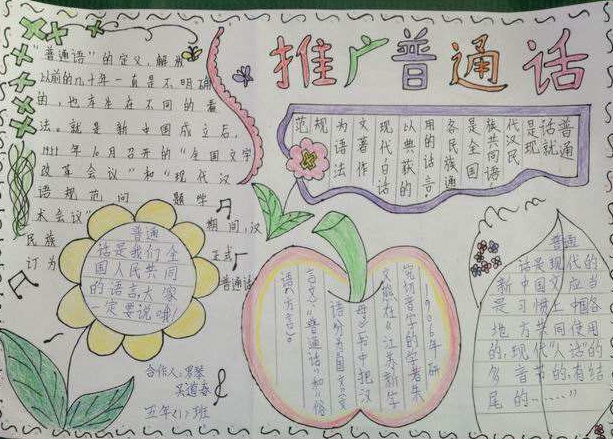 推广普通话
"普通话"的定义，解放
以前的几十年一直是不明确
的，也存在不同的看
法。就是新中国成立后，
1955年10月召开的"全国文字
改革会议"和"现代汉
语规范问题学
术会议"期间，汉
民族正式
订为普通话
普通话就
是现
代汉民
族共同语，
是全国
各民族通
用的语言。
以典范的
现代白话
文著作
为语法
规
范
普通
话是我们全
国人民共同
的语言，大家
一定要说哦！
合作人：罗馨
吴道春
五年〈1〉班
1906年研
究切音字的学者朱
文熊在《江苏新字
母》书中把汉
语分为国文（文
言文）"普通话"和"俗
语"（方言）。
普通
话是现代的
新中国文应当
是习惯上中国各
地方共同使用
的，现代"人话"的
多音节的，有结
尾的……"